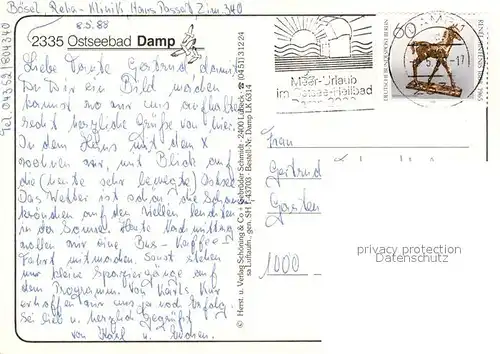 Bösel, Reha-Klinik Haus Passat Zim. 340
8.5.88
Tel. 04352/804340
2335 Ostseebad Damp
Liebe Tante Gertrud damit
Du Dir ein Bild machen
kannst wo wir uns aufhalten
recht herzliche Grüße von hier.
In dem Haus mit dem X
wohnen wir, mit Blick auf
die (heute sehr bewegte) Ostsee.
Das Wetter ist schön, die Schaum-
krönchen auf den Wellen leuchten
in der Sonne. Heute Nachmittag
wollen wir eine Bus-Kaffee-
Fahrt mitmachen. Sonst stehen
nur kleine Spaziergänge auf
dem Programm. Von Karls Kur
erhoffen wir uns ja noch Erfolg.
Sei lieb u. herzlich gegrüßt
von Karl u.
© Herst. u. Verlag Schöning & Co + Gebrüder Schmidt · 2400 Lübeck · ☎ (0451) 31224
sa Luftaufn. gen. SH 43703 · Bestell-Nr. Damp LK 6314
Meer-Urlaub
im Ostsee-Heilbad
Damp 2000
60
DEUTSCHE BUNDESPOST BERLIN
Frau
Gertrud
1000
privacy protection
Datenschutz